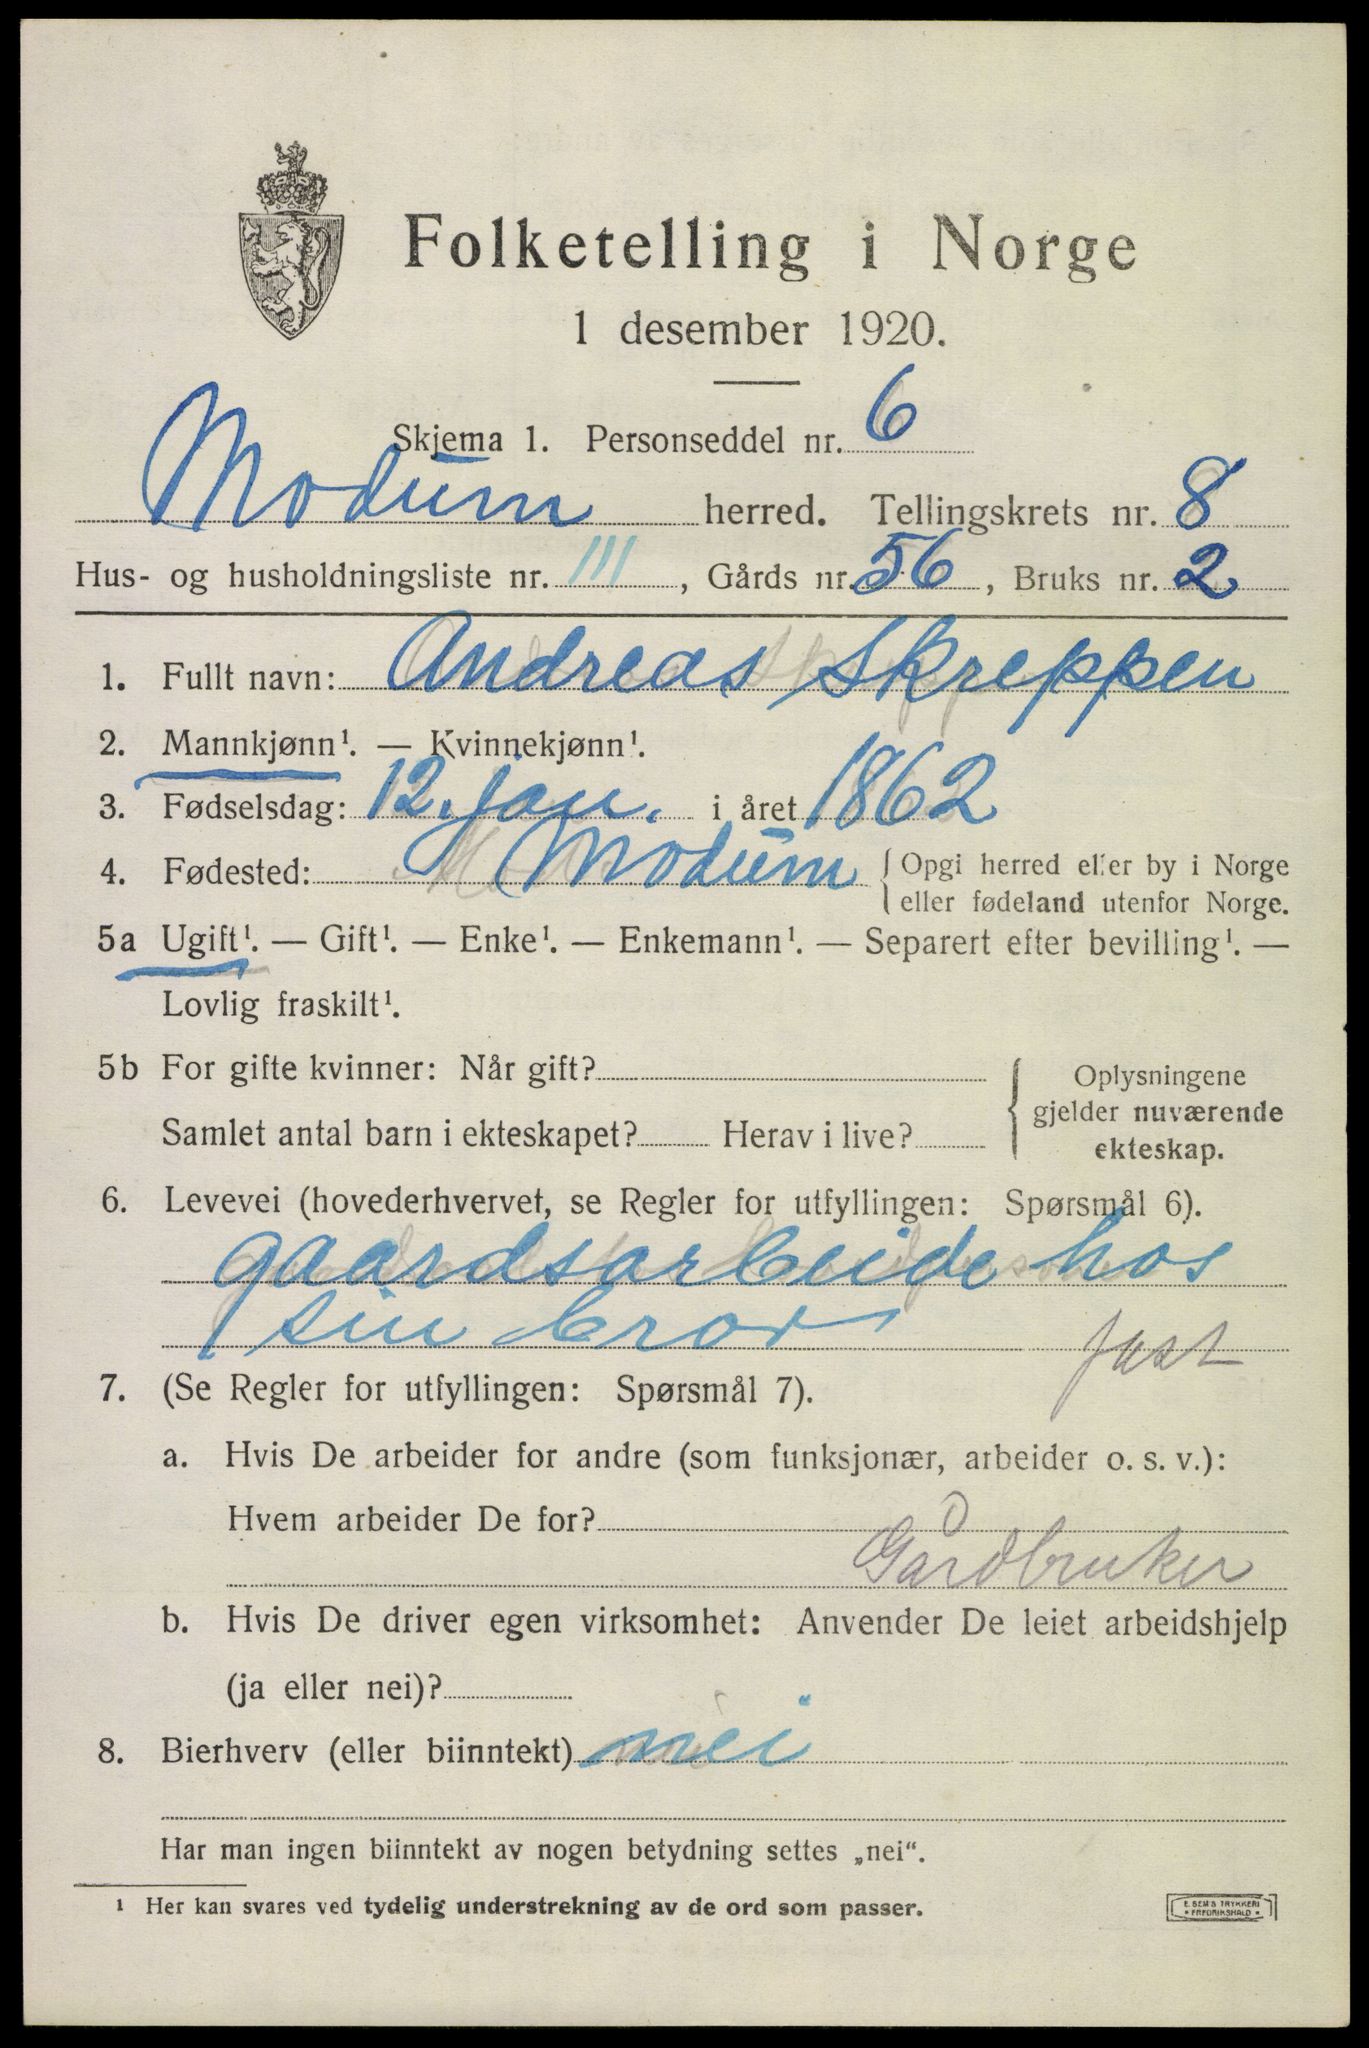 Folketelling i Norge
1 desember 1920.
Skjema 1. Personseddel nr. 6
Modum herred. Tellingskrets nr. 8
Hus- og husholdningsliste nr. III, Gårds nr. 56, Bruks nr. 2
1. Fullt navn: Andreas Skreppen
2. Mannkjønn¹. — Kvinnekjønn¹.
3. Fødselsdag: 12. jan. i året 1862
4. Fødested: Modum { Opgi herred eller by i Norge
eller fødeland utenfor Norge.
5a Ugift¹. — Gift¹. — Enke¹. — Enkemann¹. — Separert efter bevilling¹. —
Lovlig fraskilt¹.
5b For gifte kvinner: Når gift?
Samlet antal barn i ekteskapet? Herav i live?
Oplysningene
gjelder nuværende
ekteskap.
6. Levevei (hovederhvervet, se Regler for utfyllingen: Spørsmål 6).
gaardsarbeide hos
sin bror
fast
7. (Se Regler for utfyllingen: Spørsmål 7).
a. Hvis De arbeider for andre (som funksjonær, arbeider o. s. v.):
Hvem arbeider De for?
Gårdbruker
b. Hvis De driver egen virksomhet: Anvender De leiet arbeidshjelp
(ja eller nei)?
8. Bierhverv (eller biinntekt) nei
Har man ingen biinntekt av nogen betydning settes „nei“.
¹ Her kan svares ved tydelig understrekning av de ord som passer.
E. SEM'S TRYKKERI
FREDRIKSHALD